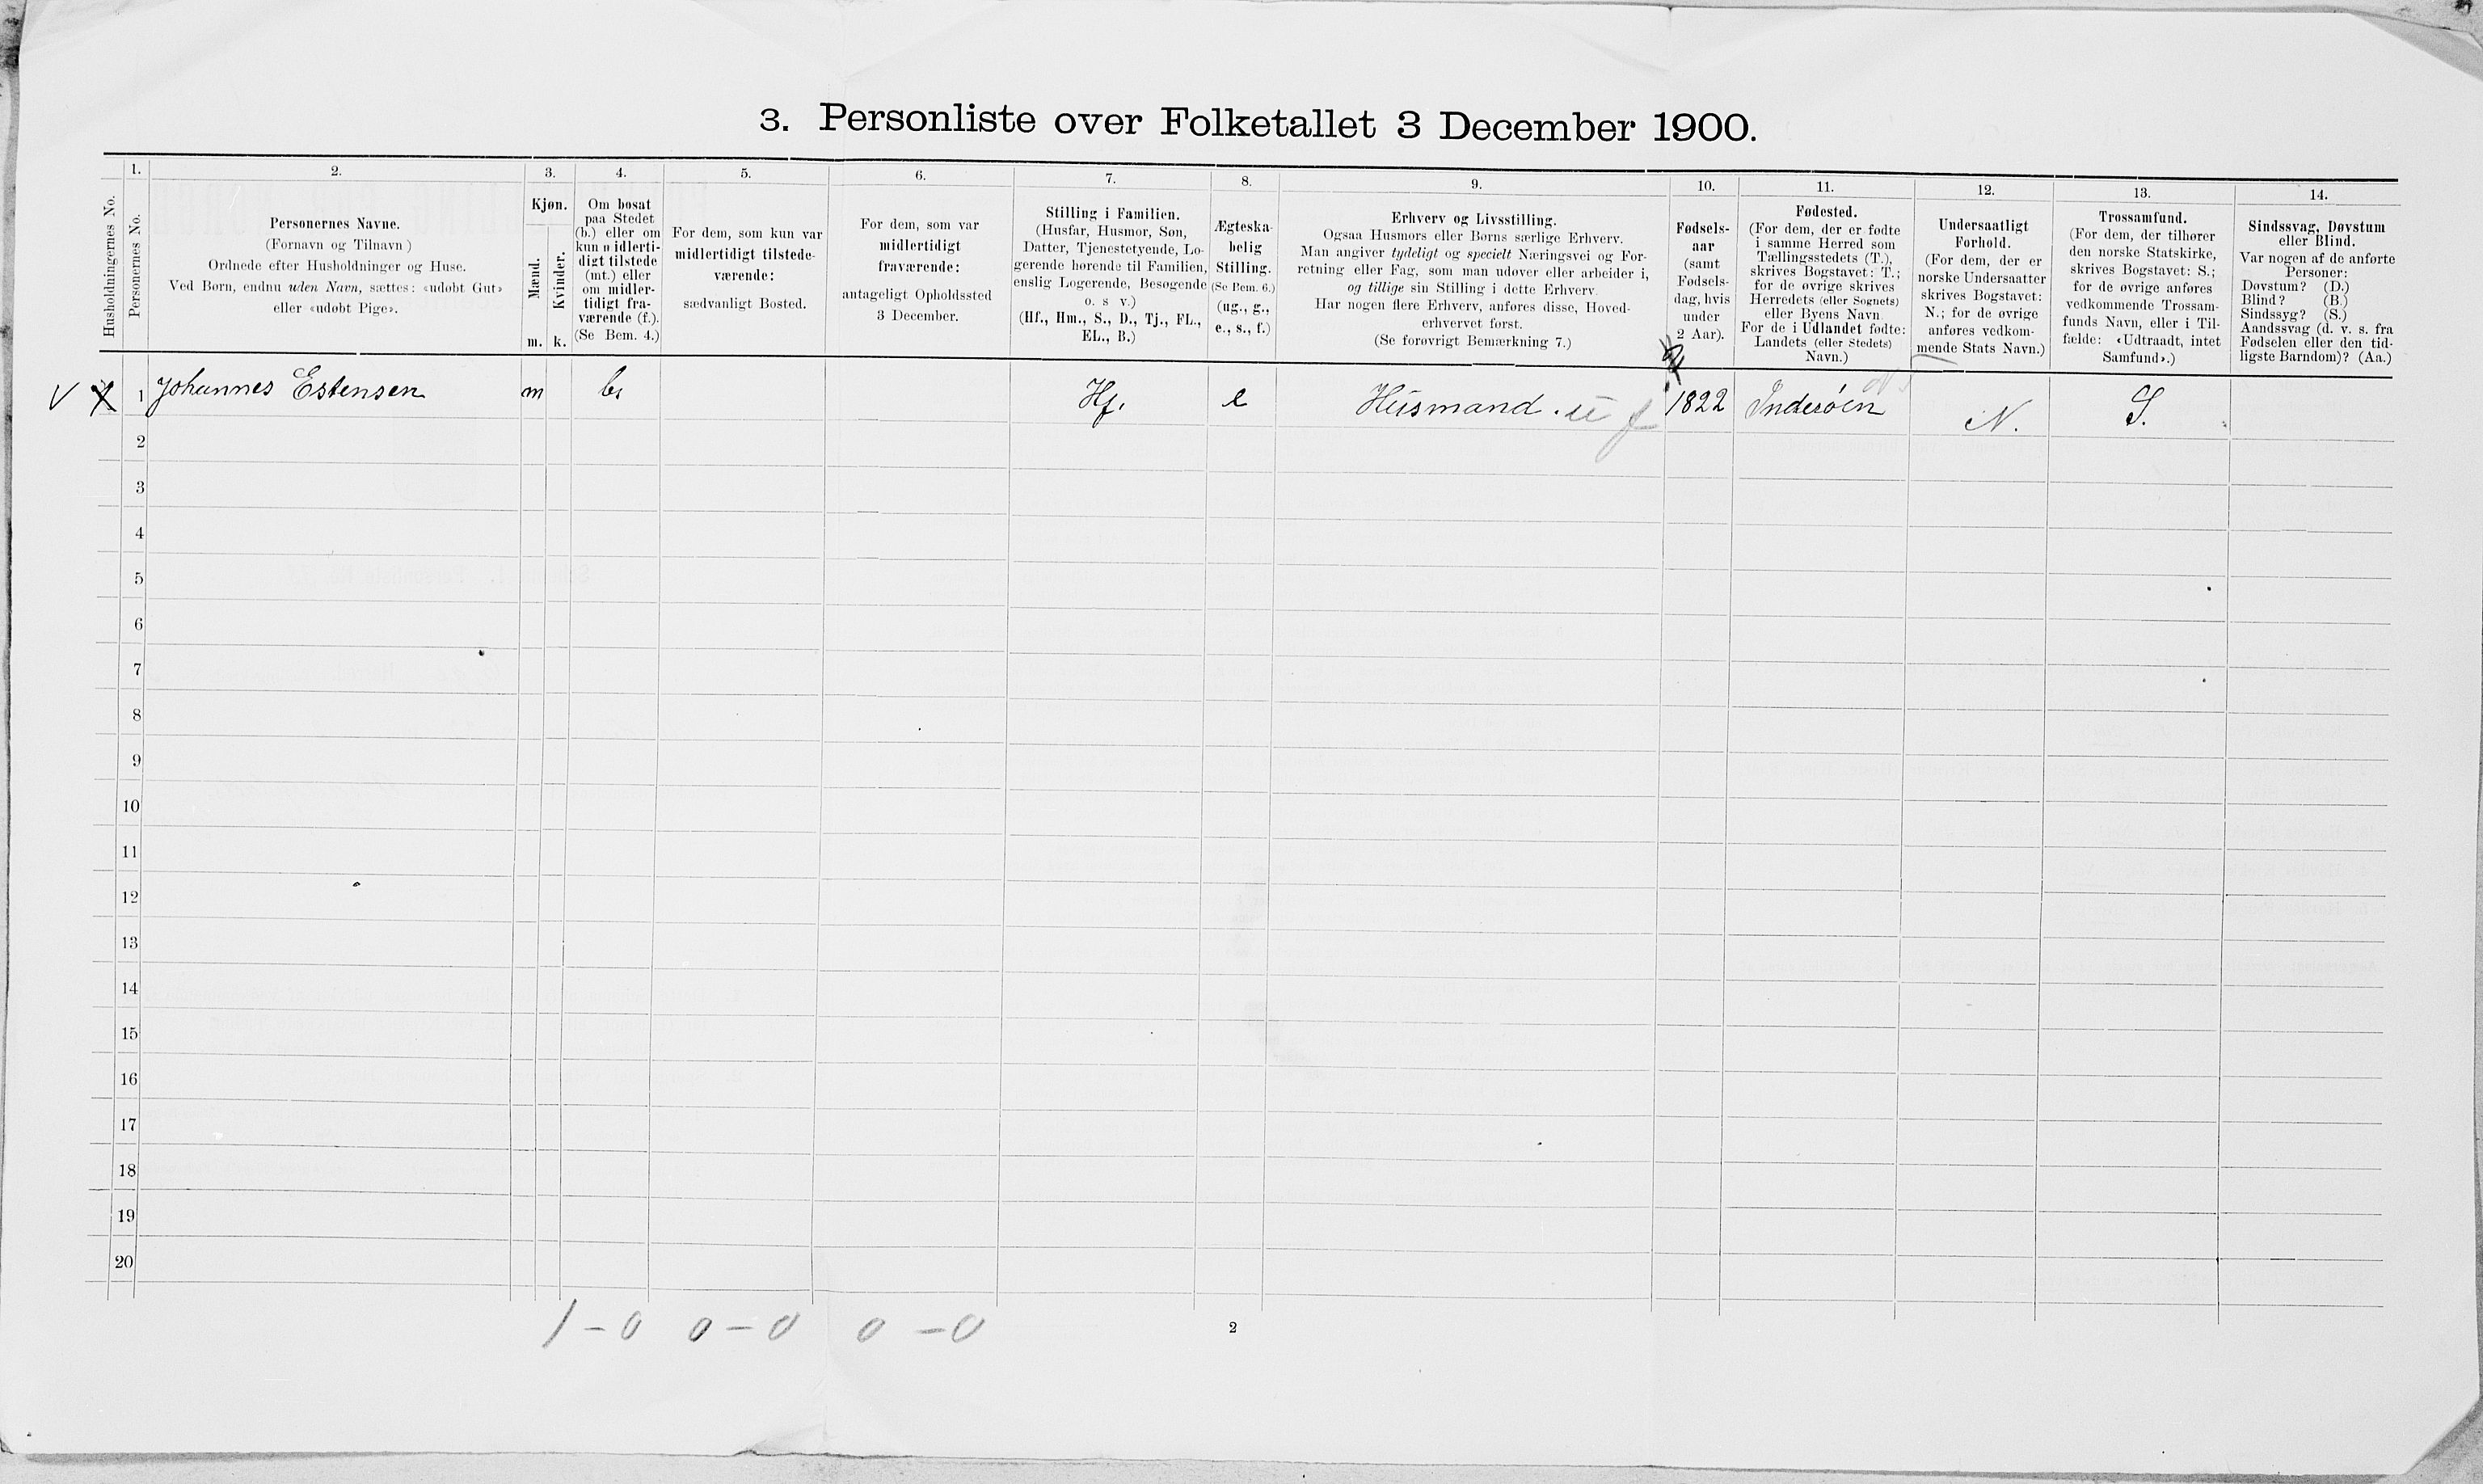 3. Personliste over Folketallet 3 December 1900.
Husholdningernes No.
1.
Personernes No.
2.
Personernes Navne.
(Fornavn og Tilnavn)
Ordnede efter Husholdninger og Huse.
Ved Børn, endnu uden Navn, sættes: «udøbt Gut»
eller «udøbt Pige».
3.
Kjøn.
Mænd.
Kvinder.
m. k.
4.
Om bosat
paa Stedet
(b.) eller om
kun midlerti-
digt tilstede
(mt.) eller
om midler-
tidigt fra-
værende (f.).
(Se Bem. 4.)
5.
For dem, som kun var
midlertidigt tilstede-
værende:
sædvanligt Bosted.
6.
For dem, som var
midlertidigt
fraværende:
antageligt Opholdssted
3 December.
7.
Stilling i Familien.
(Husfar, Husmor, Søn,
Datter, Tjenestetyende, Lo-
gerende hørende til Familien,
enslig Logerende, Besøgende
o. s v.)
(Hf., Hm., S., D., Tj., FL.,
EL., B.)
8.
Ægteska-
belig
Stilling.
(Se Bem. 6.)
(ug., g.,
e., s., f.)
9.
Erhverv og Livsstilling.
Ogsaa Husmors eller Børns særlige Erhverv.
Man angiver tydeligt og specielt Næringsvei og For-
retning eller Fag, som man udøver eller arbeider i,
og tillige sin Stilling i dette Erhverv.
Har nogen flere Erhverv, anføres disse, Hoved-
erhvervet først.
(Se forøvrigt Bemærkning 7.)
10.
Fødsels-
aar
(samt
Fødsels-
dag, hvis
under
2 Aar).
11.
Fødested.
(For dem, der er fødte
i samme Herred som
Tællingsstedets (T.),
skrives Bogstavet: T.;
for de øvrige skrives
Herredets (eller Sognets)
eller Byens Navn.
For de i Udlandet fødte:
Landets (eller Stedets)
Navn.)
12.
Undersaatligt
Forhold.
(For dem, der er
norske Undersaatter
skrives Bogstavet:
N.; for de øvrige
anføres vedkom-
mende Stats Navn.)
13.
Trossamfund.
(For dem, der tilhører
den norske Statskirke,
skrives Bogstavet: S.;
for de øvrige anføres
vedkommende Trossam-
funds Navn, eller i Til-
fælde: «Udtraadt, intet
Samfund».)
14.
Sindssvag, Døvstum
eller Blind.
Var nogen af de anførte
Personer:
Døvstum? (D.)
Blind? (B.)
Sindssyg? (S.)
Aandssvag (d. v. s. fra
Fødselen eller den tid-
ligste Barndom)? (Aa.)
1 Johannes Estensen m b. Hf. e Husmand. 1822 Inderøen N. S.
2
3
4
5
6
7
8
9
10
11
12
13
14
15
16
17
18
19
20
1 - 0 0 - 0 0 - 0
2